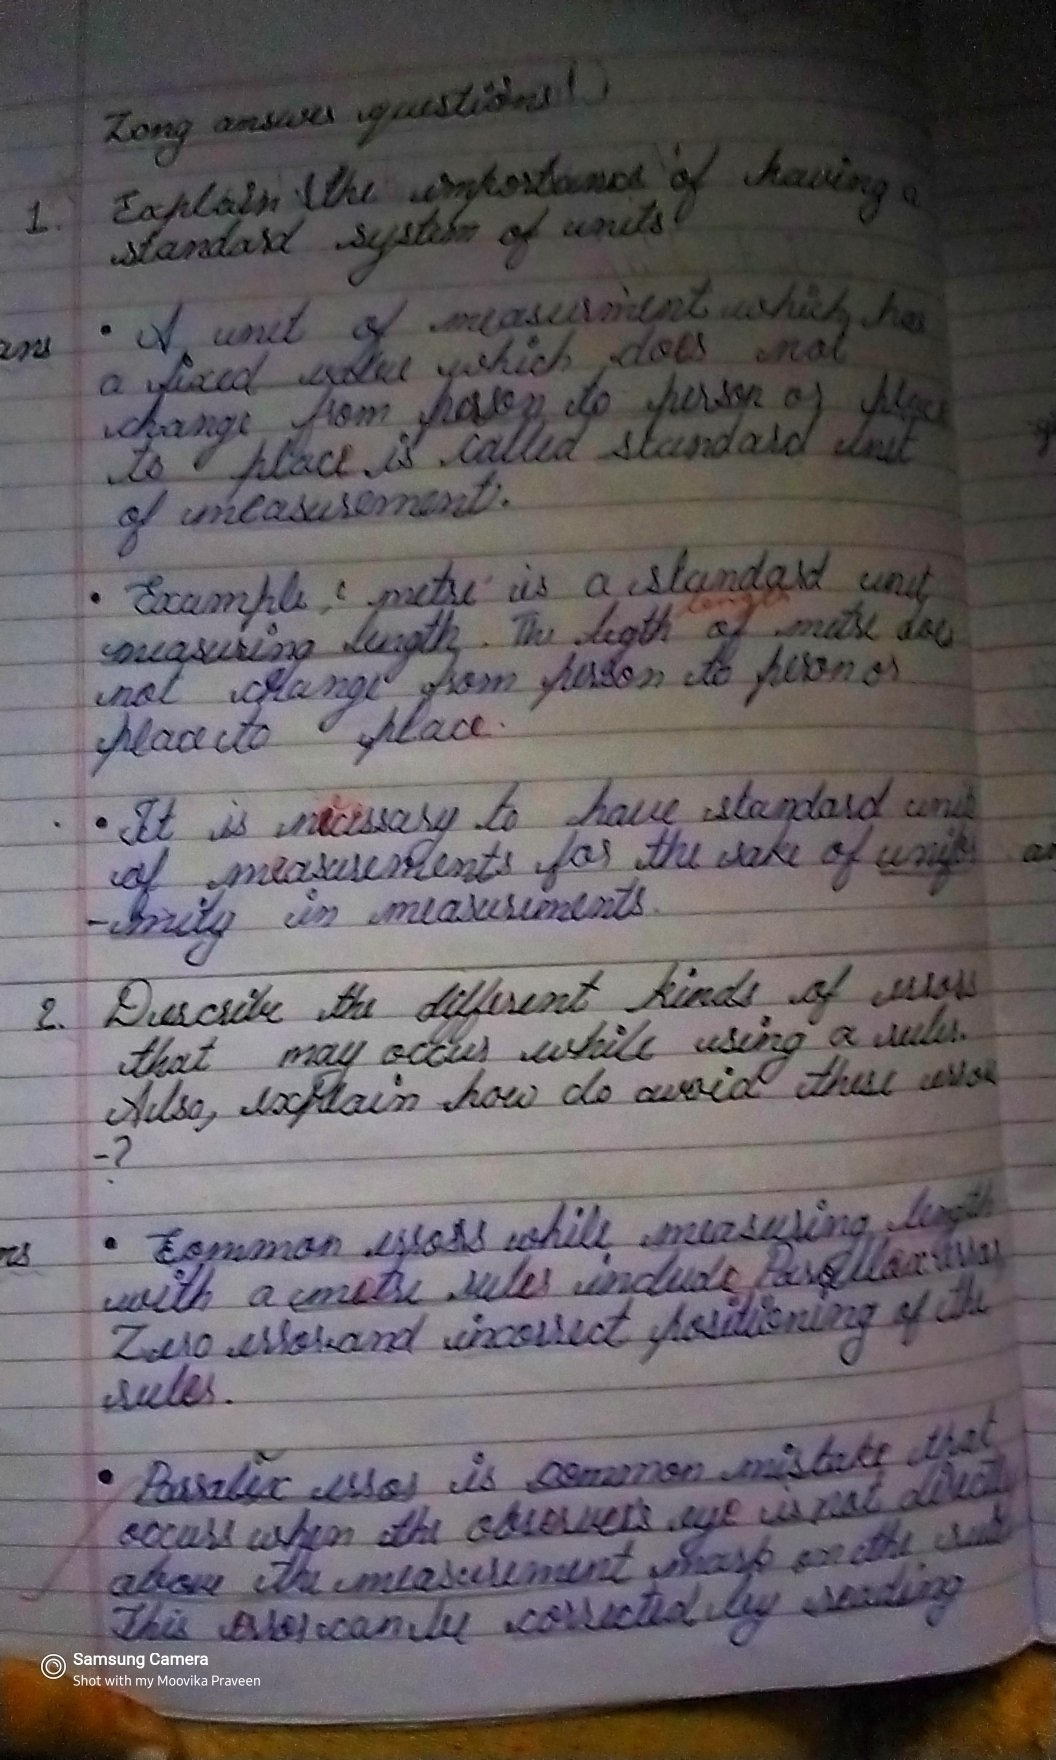 Long answer questions!
1. Explain the importance of having a
standard system of units
ans • A unit of measurment which has
a fixed value which does not
change from person to person or place
to place is called standard unit
of measurement.
• Example, 'metre' is a standard unit
length
measuring length. The legth of metre does
not change from person to person or
place to place.
• It is necessary to have standard unit
of measurements for the sake of unifor
-mity in measurements.
2. Describe the different kinds of errors
that may occur while using a ruler.
Also, explain how do avoid these error
-?
• Common errors while measuring length
with a metre ruler include Parallax error,
Zero error and incorrect positioning of the
ruler.
• error is common mistake that
occurs when the observer's eye is not directly
above the measurement mark on the rule
This error can be corrected by reading
Samsung Camera
Shot with my Moovika Praveen